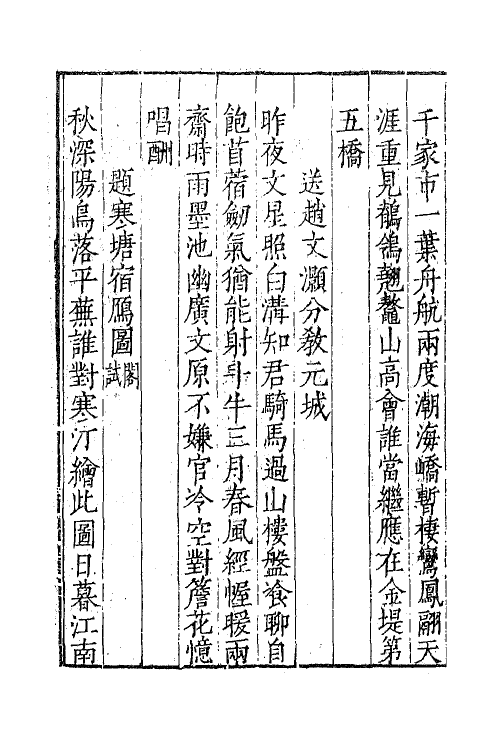 千家市一葉舟航兩度潮海嶠暫棲鸞鳳翮天
涯重見鶺鴒翹鼇山高會誰當繼應在金堤第
五橋
送趙文灝分敎元城
昨夜文星照白溝知君騎馬過山樓盤飡聊自
飽苜蓿劒氣猶能射斗牛三月春風經幄暖兩
齋時雨墨池幽廣文原不嫌官冷空對簷花憶
唱酬
題寒塘宿鴈圖閣試
秋深陽鳥落平蕪誰對寒汀繪此圖日暮江南